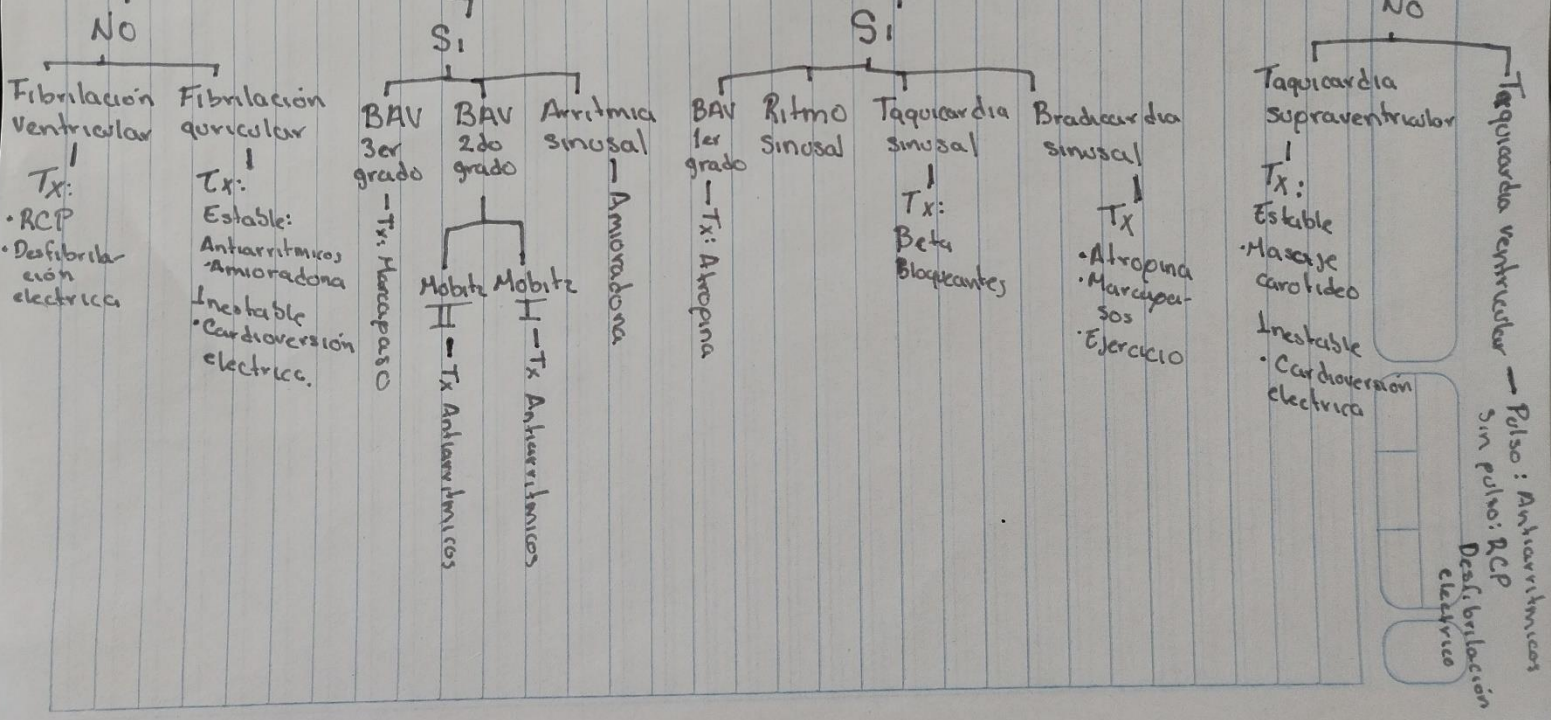 No
Fibrilación
ventricular
Tx:
• RCP
• Desfibrila-
ción
electrica
Fibrilación
auricular
Tx:
Estable:
Antiarritmicos
• Amioradona
Inestable
• Cardioversión
electrica.
Si
BAV
3er
grado
- Tx: Marcapaso
BAV
2do
grado
Mobitz
II - Tx Antiarritmicos
Mobitz
I - Tx Antiarritmicos
Arritmia
sinusal
- Amioradona
Si
BAV
1er
grado
- Tx: Atropina
Ritmo
Sinusal
Taquicardia
sinusal
Tx:
Beta
Bloqueantes
Bradicardia
sinusal
Tx
• Atropina
• Marcapa-
sos
• Ejercicio
No
Taquicardia
supraventricular
Tx:
Estable
• Masaje
carotideo
Inestable
• Cardioversión
electrica
Taquicardia ventricular - Pulso: Antiarritmicos
Sin pulso: RCP
Desfibrilación
electrico